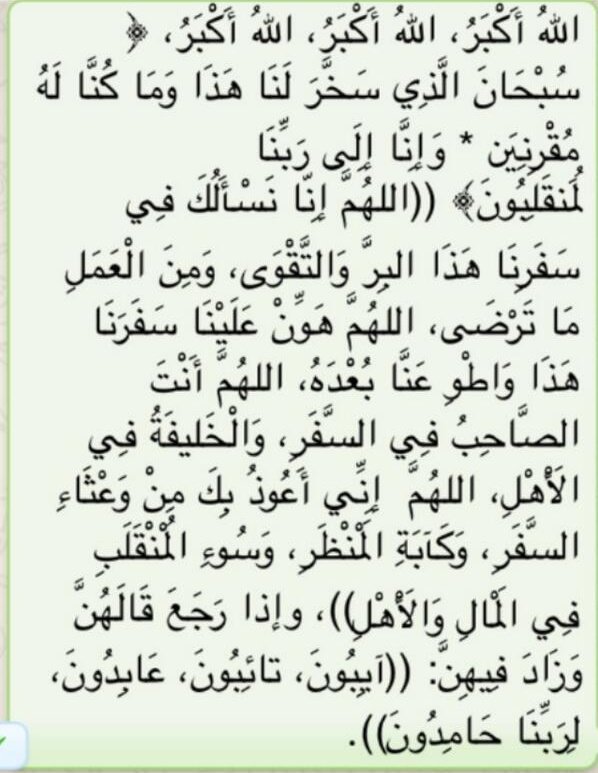 اللهُ أَكْبَرُ، اللهُ أَكْبَرُ، اللهُ أَكْبَرُ، ﴿
سُبْحَانَ الَّذِي سَخَّرَ لَنَا هَذَا وَمَا كُنَّا لَهُ
مُقْرِنِينَ * وَإِنَّا إِلَى رَبِّنَا
لَمُنقَلِبُونَ﴾ ((اللهُمَّ إِنَّا نَسْأَلُكَ فِي
سَفَرِنَا هَذَا البِرَّ وَالتَّقْوَى، وَمِنَ الْعَمَلِ
مَا تَرْضَى، اللهُمَّ هَوِّنْ عَلَيْنَا سَفَرَنَا
هَذَا وَاطْوِ عَنَّا بُعْدَهُ، اللهُمَّ أَنْتَ
الصَّاحِبُ فِي السَّفَرِ، وَالْخَلِيفَةُ فِي
الأَهْلِ، اللهُمَّ إِنِّي أَعُوذُ بِكَ مِنْ وَعْثَاءِ
السَّفَرِ، وَكَآبَةِ الْمَنْظَرِ، وَسُوءِ الْمُنْقَلَبِ
فِي الْمَالِ وَالأَهْلِ))، وإذا رَجَعَ قَالَهُنَّ
وَزَادَ فِيهِنَّ: ((آيِبُونَ، تائِبُونَ، عَابِدُونَ،
لِرَبِّنَا حَامِدُونَ)).